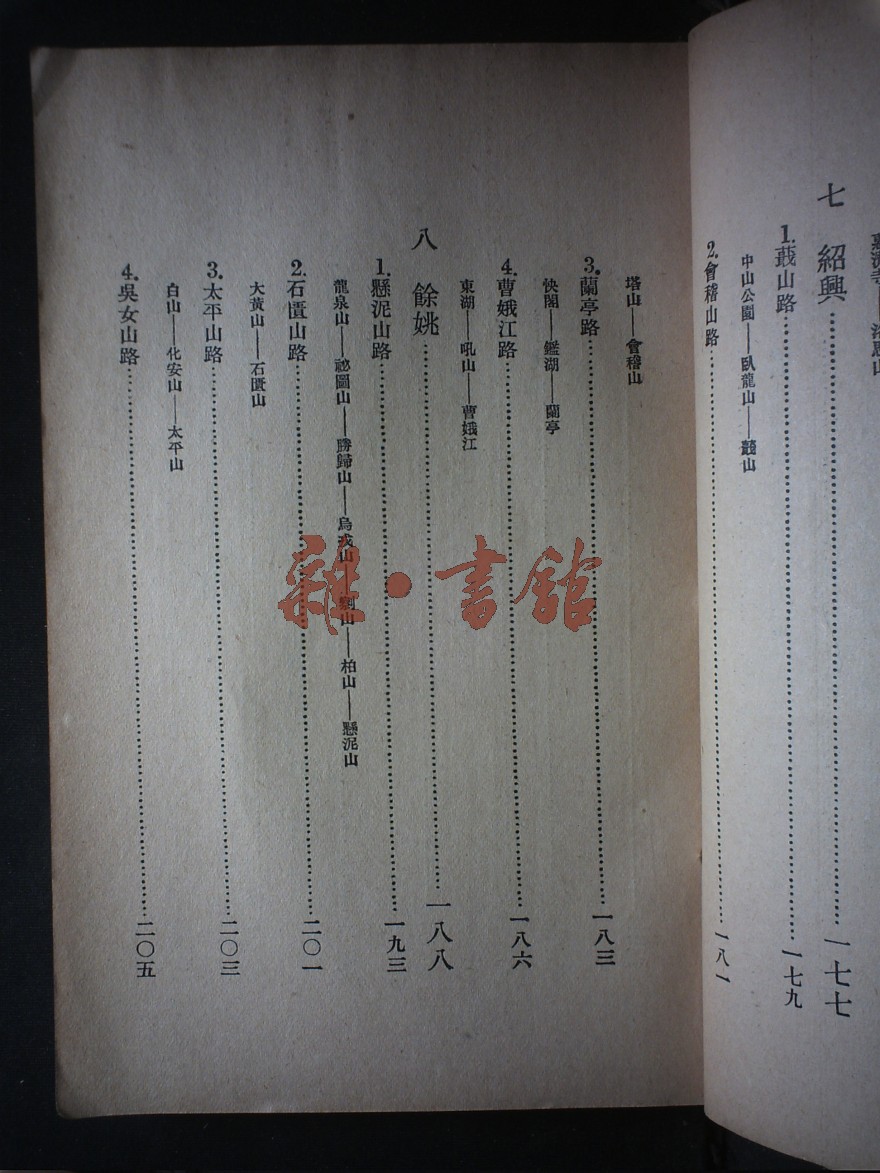 七　紹興……一七七
1. 蕺山路……一七九
中山公園——臥龍山——蕺山
2. 會稽山路……一八一
塔山——會稽山
3. 蘭亭路……一八三
快閣——鑑湖——蘭亭
4. 曹娥江路……一八六
東湖——吼山——曹娥江
八　餘姚……一八八
1. 懸泥山路……一九三
龍泉山——祕圖山——勝歸山——烏戎山——劉山——柏山——懸泥山
2. 石匱山路……二〇一
大黃山——石匱山
3. 太平山路……二〇三
白山——化安山——太平山
4. 吳女山路……二〇五
雜·書館